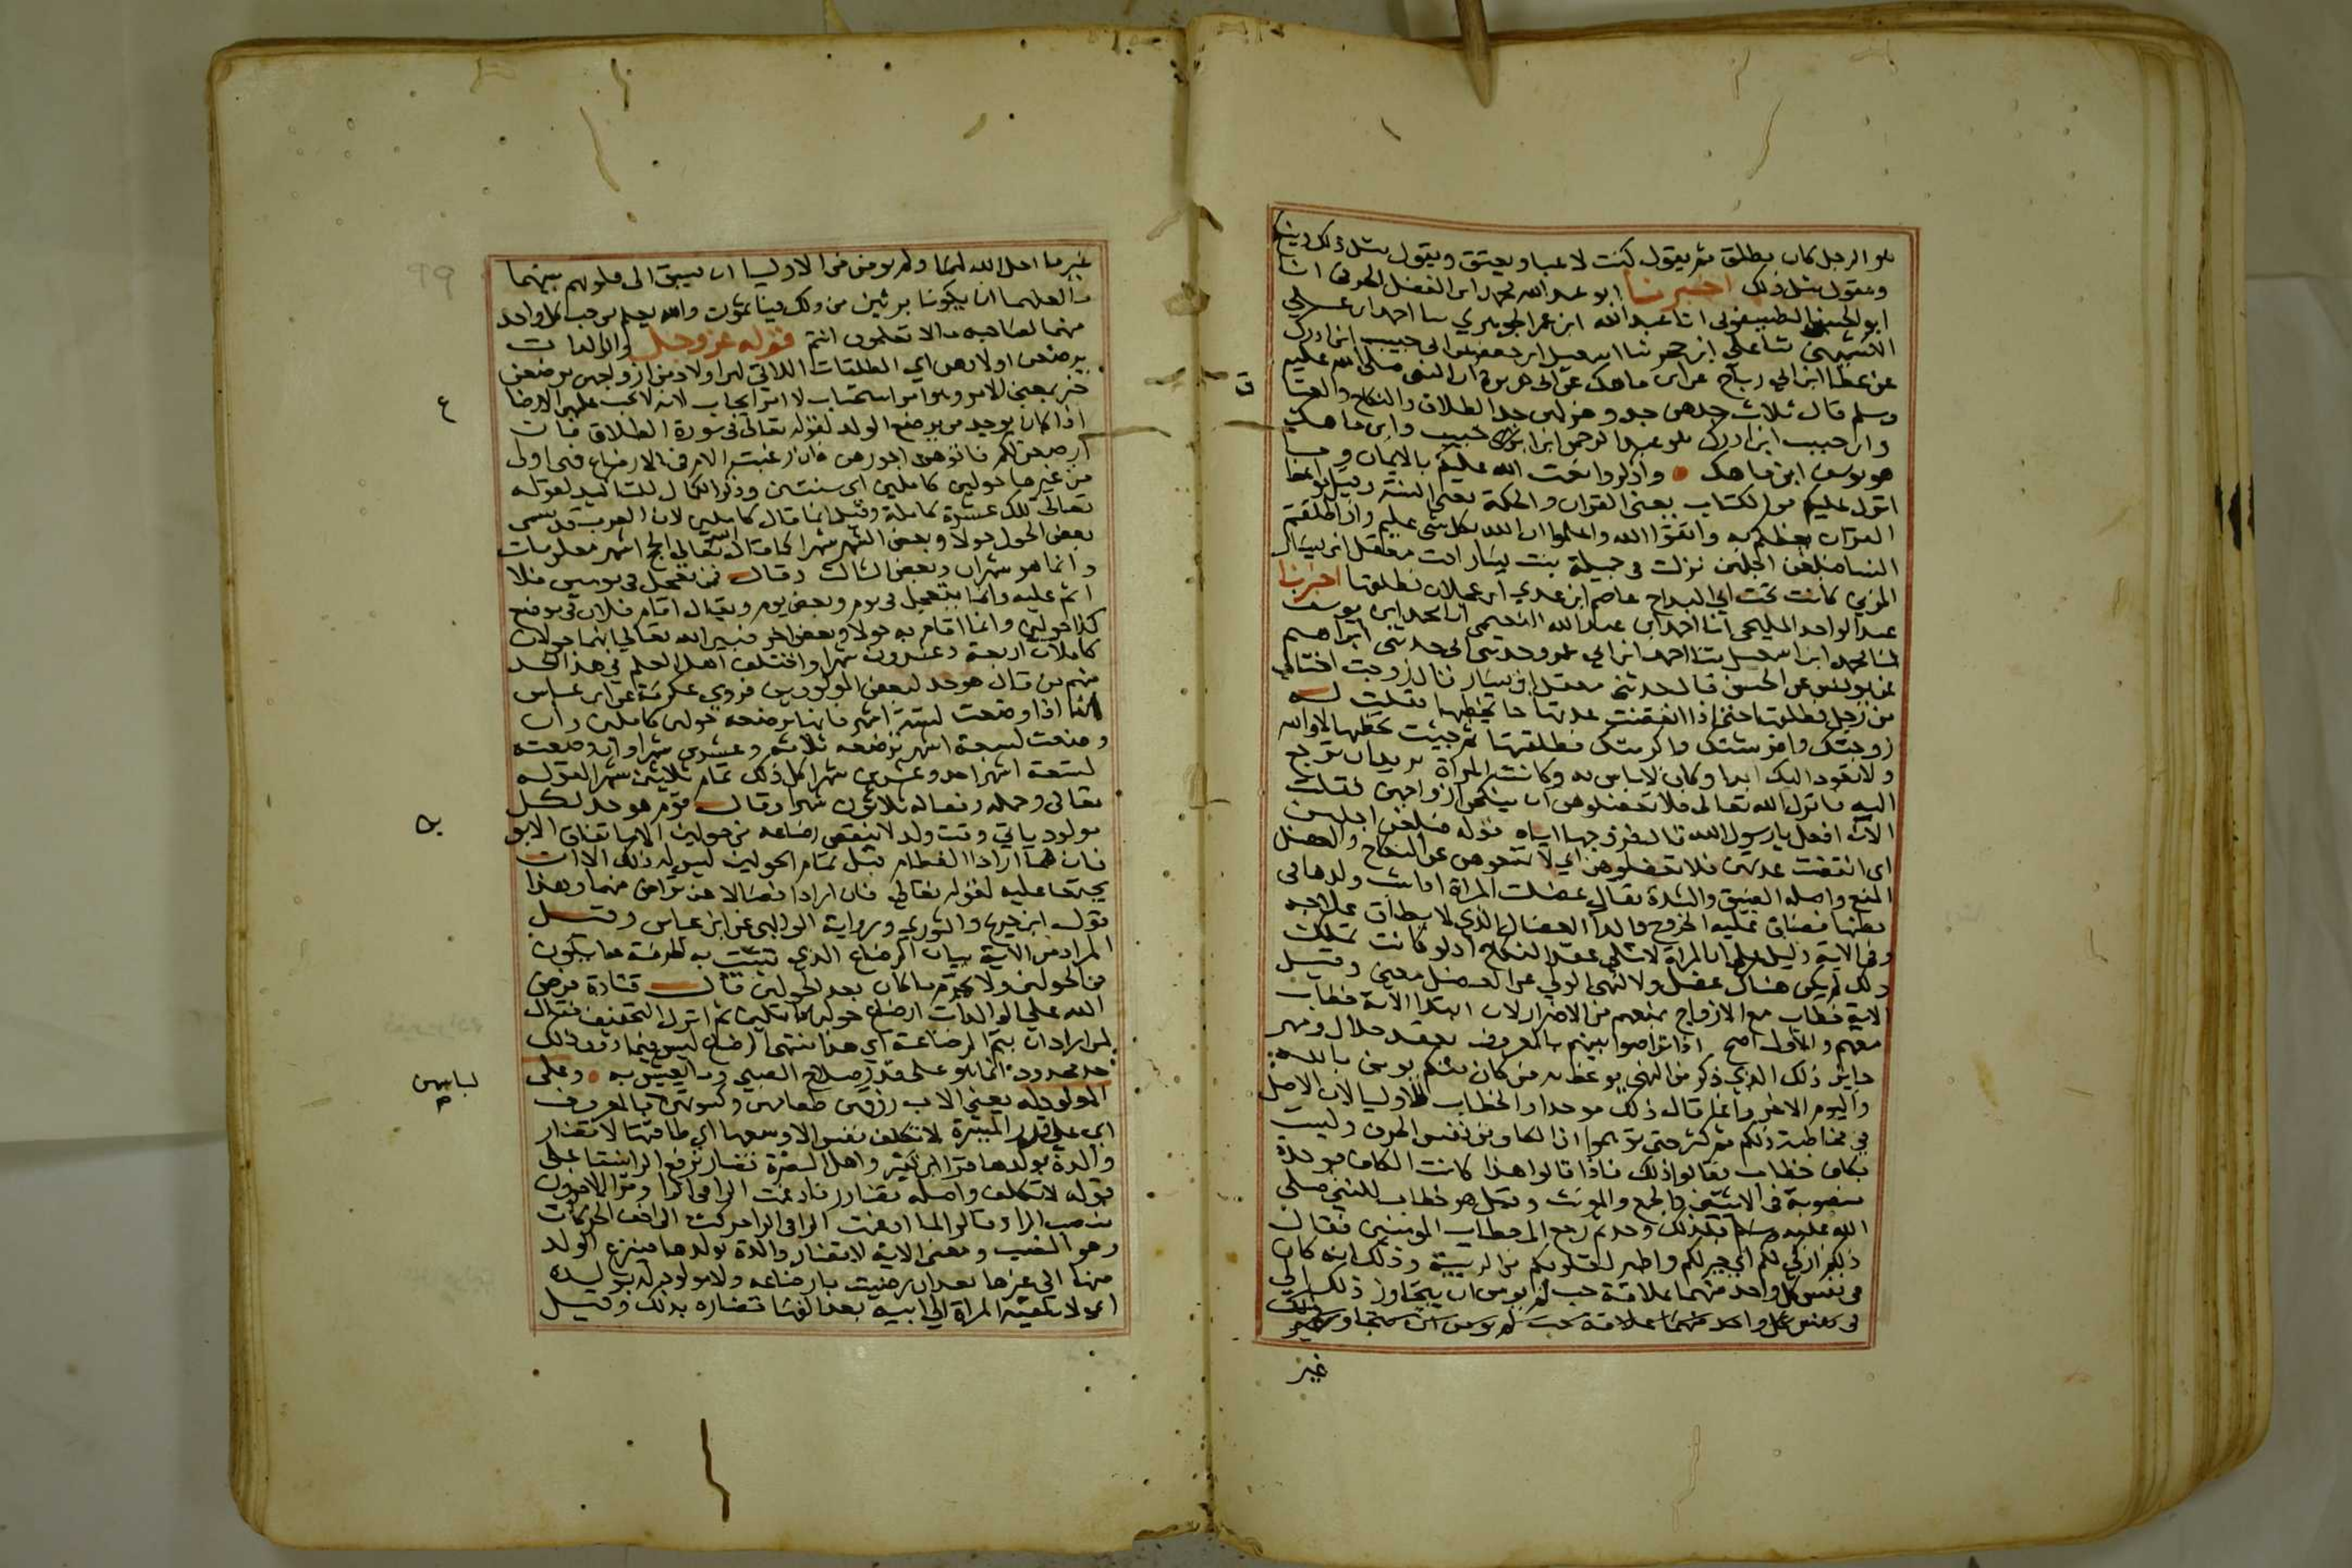 هو الرجل كان يطلق ثم يقول كنت لاعبا ويعتق ويقول مثل ذلك وينكح
ويقول مثل ذلك اخبرنا ابو عبد الله محمد ابن الفضل الخرقي انا
ابو الحسن الطيسفوني انا عبد الله ابن عمر الجوهري سا احمد ابن علي
الكشميهني ثنا علي ابن حجر ثنا اسمعيل ابن جعفر عن ابي حبيب ابن اردك
عن عطا ابن ابي رباح عن ابن ماهك عن ابي هريرة ان النبي صلى الله عليه
وسلم قال ثلاث جدهن جد وهزلهن جد الطلاق والنكاح
وابن حبيب ابن اردك هو عبد الرحمن ابن حبيب وابن ماهك
هو يوسف ابن ماهك واذكروا نعمت الله عليكم بالايمان وما
انزل عليكم من الكتاب يعني القران والحكمة يعني السنة وقيل مواعظ
القران يعظكم به واتقوا الله واعلموا ان الله بكل شي عليم واذا طلقتم
النسا فبلغن اجلهن نزلت في جميلة بنت يسار اخت معقل ابن يسار
المزني كانت تحت ابي البداح عاصم ابن عدي ابن عجلان فطلقها اخبرنا
عبد الواحد المليحي انا احمد ابن عبد الله النعيمي انا محمد ابن يوسف
ثنا محمد ابن اسمعيل ثنا احمد ابن ابي عمرو حدثني ابي حدثني ابراهيم
عن يونس عن الحسن قال حدثني معقل ابن يسار قال زوجت اختا لي
من رجل فطلقها حتى اذا انقضت عدتها جا يخطبها فقلت له
زوجتك وافرشتك واكرمتك فطلقتها ثم جيت تخطبها لا والله
ولا تعود اليك ابدا وكان لا باس به وكانت المراة تريد ان ترجع
اليه فانزل الله تعالى فلا تعضلوهن ان ينكحن ازواجهن فقلت
الان افعل يا رسول الله قال فزوجها اياه قوله فبلغن اجلهن
اى انقضت عدتهن فلا تعضلوهن اي لا تمنعوهن عن النكاح والعضل
المنع واصله الضيق والشدة يقال عضلت المراة اذا نشب ولدها في
بطنها فضاق عليه الخروج والدا العضال الذي لا يطاق علاجه
وفي الاية دليل على ان المراة لا تلي عقد النكاح اذ لو كانت تملك
ذلك لم يكن هناك عضل ولا لنهى الولي عن العضل معنى وقيل
الاية خطاب مع الازواج لمنعهم من الاضرار لان ابتدا الاية خطاب
معهم والاول اصح اذا تراضوا بينهم بالمعروف بعقد حلال ومهر
جايز ذلك الذي ذكر من النهي يوعظ به من كان منكم يومن بالله
واليوم الاخر وانما قال ذلك موحدا والخطاب للاوليا لان الاصل
في مخاطبة ذلكم ثم كثر حتى توهموا ان الكاف من نفس الحرف وليست
بكاف خطاب فقالوا ذلك فاذا قالوا هذا كانت الكاف موحدة
منصوبة في الاثنين والجمع والمونث وقيل هو خطاب للنبي صلى
الله عليه وسلم فلذلك وحد ثم رجع الى خطاب المومنين فقال
ذلكم ازكي لكم اي خير لكم واطهر لقلوبكم من الريبة وذلك انه كان
في نفس كل واحد منهما علاقة حب لم يومن ان يتجاوز ذلك الي
في نفس كل واحد منهما علاقة حب لم يومن ان يتجاوز ذلك
غير
غير ما احل الله لهما ولم يومن من الاوليا ان يسبق الى قلوبهم بينهما
ما لعلهما ان يكونا بريئين من ذلك فيأثمون والله يعلم من حب كل واحد
منهما لصاحبه ما لا تعلمون انتم قوله عز وجل والوالدات
يرضعن اولادهن اي المطلقات اللاتي لهن اولاد من ازواجهن يرضعن
خبر بمعنى الامر وهو امر استحباب لا امر ايجاب لانه لا يجب عليهن الارضا
ع
اذا كان يوجد من يرضع الولد لقوله تعالى في سورة الطلاق فان
ارضعن لكم فاتوهن اجورهن فان رغبت الام في الارضاع فهي اولى
من غيرها حولين كاملين اى سنتين وذكر الكمال للتاكيد لقوله
تعالى تلك عشرة كاملة وقيل انما قال كاملين لان العرب قد تسمى
بعض الحول حولا وبعض الشهر شهرا كما قال الله تعالى الحج اشهر معلومات
وانما هو شهران وبعض الثالث وقال فمن تعجل في يومين فلا
اثم عليه وانما يتعجل في يوم وبعض يوم ويقال اقام فلان في موضع
كذا حولين وانما اقام به حولا وبعض اخر فبين الله تعالى انهما حولان
كاملان اربعة وعشرون شهرا واختلف اهل العلم في هذا الحد
منهم من قال هو حد لبعض المولودين فروي عكرمة عن ابن عباس
انها اذا وضعت لستة اشهر فانها ترضعه حولين كاملين وان
وضعت لسبعة اشهر ترضعه ثلاثة وعشرين شهرا وان وضعته
لتسعة اشهر احد وعشرين شهرا كل ذلك تمام ثلاثين شهرا لقوله
تعالى وحمله وفصاله ثلاثون شهرا وقال قوم هو حد لكل
مولود ياتي وقت ولد لا ينقص رضاعه عن حولين الا باتفاق الابو
ين
فان هما ارادا الفطام قبل تمام الحولين ليس له ذلك الا ان
يجتمعا عليه لقوله تعالى فان ارادا فصالا عن تراض منهما وهذا
قول ابن جريج والثوري ورواية الوالبي عن ابن عباس وقيل
المراد من الاية بيان الرضاع الذي تثبت به الحرمة ما يكون
في الحولين ولا يحرم ما كان بعد الحولين قال قتادة فرض
الله على الوالدات ارضاع حولين كاملين ثم انزل التخفيف فقال
لمن اراد ان يتم الرضاعة اي هذا منتهى الرضاع ليس فيما دون ذلك
حد محدود انما هو على قدر صلاح الصبي وما يعيش به وعلى
المولود له يعني الاب رزقهن طعامهن وكسوتهن بالمعروف
لباسهن
اي على قدر الميسرة لا تكلف نفس الا وسعها اي طاقتها لا تضار
والدة بولدها قرا ابن كثير واهل البصرة تضار برفع الرا نسقا على
قوله لا تكلف واصله تضارر فادغمت الرا في الرا وقرا الاخرون
بنصب الرا وقالوا لما ادغمت الرا في الرا حركت الى اخف الحركات
وهو النصب ومعنى الاية لا تضار والدة بولدها فينزع الولد
منها الى غيرها بعد ان رضيت بارضاعه ولا مولود له بولده
اي لا تلقيه المراة الي ابيه بعد الفها تضاره بذلك وقيل